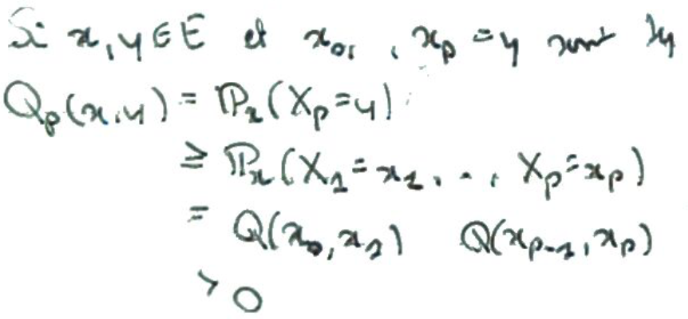 Si x, y ∈ E et x₀, , x_p = y sont tq
Q_p(x, y) = ℙ_x(X_p = y)
≥ ℙ_x(X_1 = x_1, .., X_p = x_p)
= Q(x_0, x_1) Q(x_{p-1}, x_p)
> 0